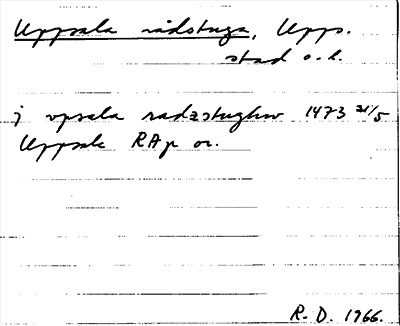 Uppsala rådstuga, Upps.
stad o. l.
j vpsala radzstughw 1473 21/5
Uppsala RAp or.
R. D. 1966.